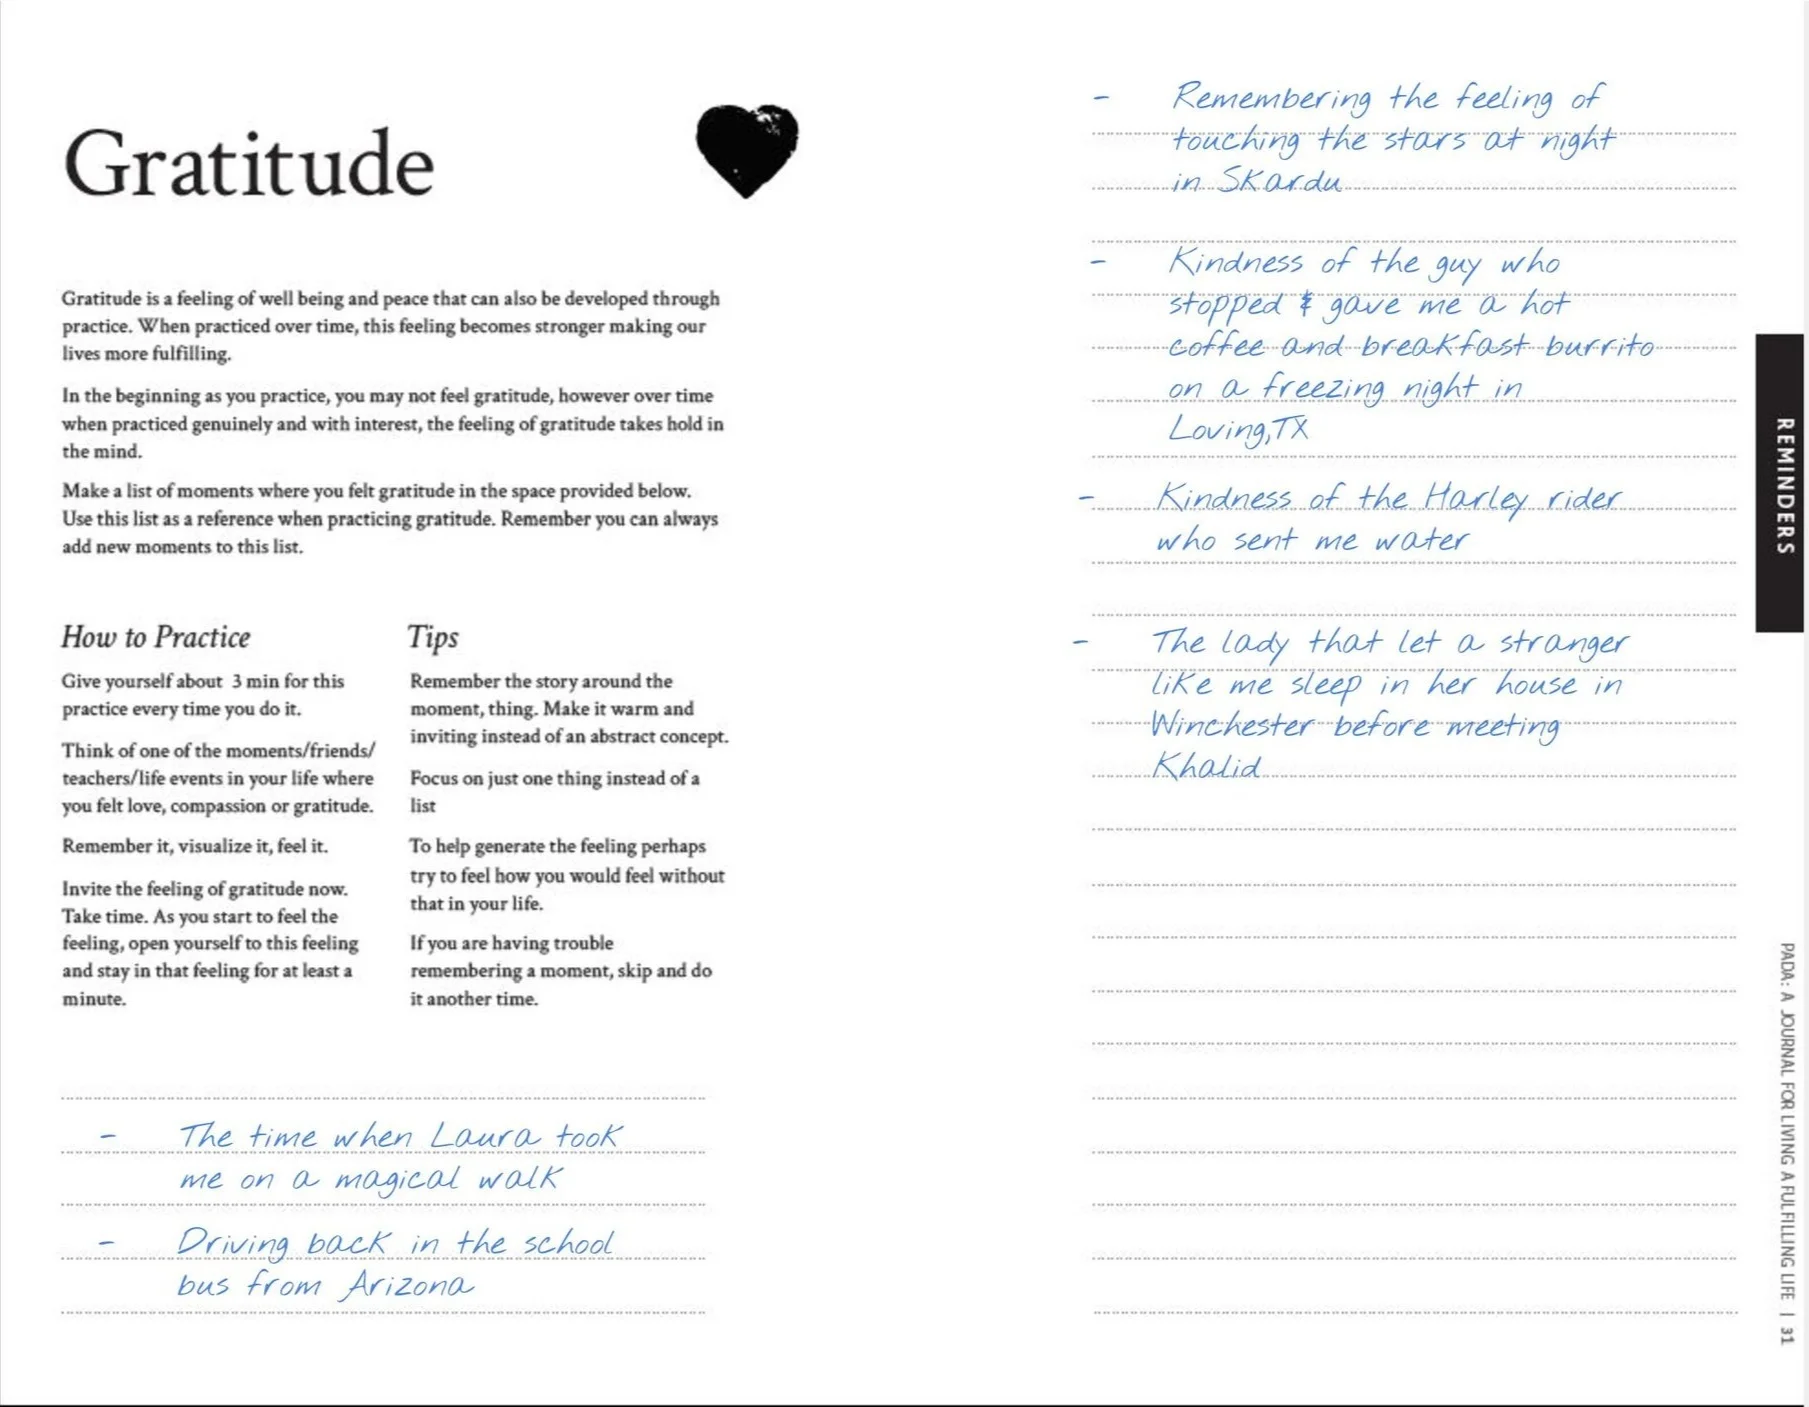 Gratitude
Gratitude is a feeling of well being and peace that can also be developed through
practice. When practiced over time, this feeling becomes stronger making our
lives more fulfilling.
In the beginning as you practice, you may not feel gratitude, however over time
when practiced genuinely and with interest, the feeling of gratitude takes hold in
the mind.
Make a list of moments where you felt gratitude in the space provided below.
Use this list as a reference when practicing gratitude. Remember you can always
add new moments to this list.
How to Practice
Give yourself about 3 min for this
practice every time you do it.
Think of one of the moments/friends/
teachers/life events in your life where
you felt love, compassion or gratitude.
Remember it, visualize it, feel it.
Invite the feeling of gratitude now.
Take time. As you start to feel the
feeling, open yourself to this feeling
and stay in that feeling for at least a
minute.
Tips
Remember the story around the
moment, thing. Make it warm and
inviting instead of an abstract concept.
Focus on just one thing instead of a
list
To help generate the feeling perhaps
try to feel how you would feel without
that in your life.
If you are having trouble
remembering a moment, skip and do
it another time.
- The time when Laura took
me on a magical walk
- Driving back in the school
bus from Arizona
- Remembering the feeling of
touching the stars at night
in Skardu
- Kindness of the guy who
stopped & gave me a hot
coffee and breakfast burrito
on a freezing night in
Loving,TX
- Kindness of the Harley rider
who sent me water
- The lady that let a stranger
like me sleep in her house in
Winchester before meeting
Khalid
REMINDERS
PADA: A JOURNAL FOR LIVING A FULFILLING LIFE | 31